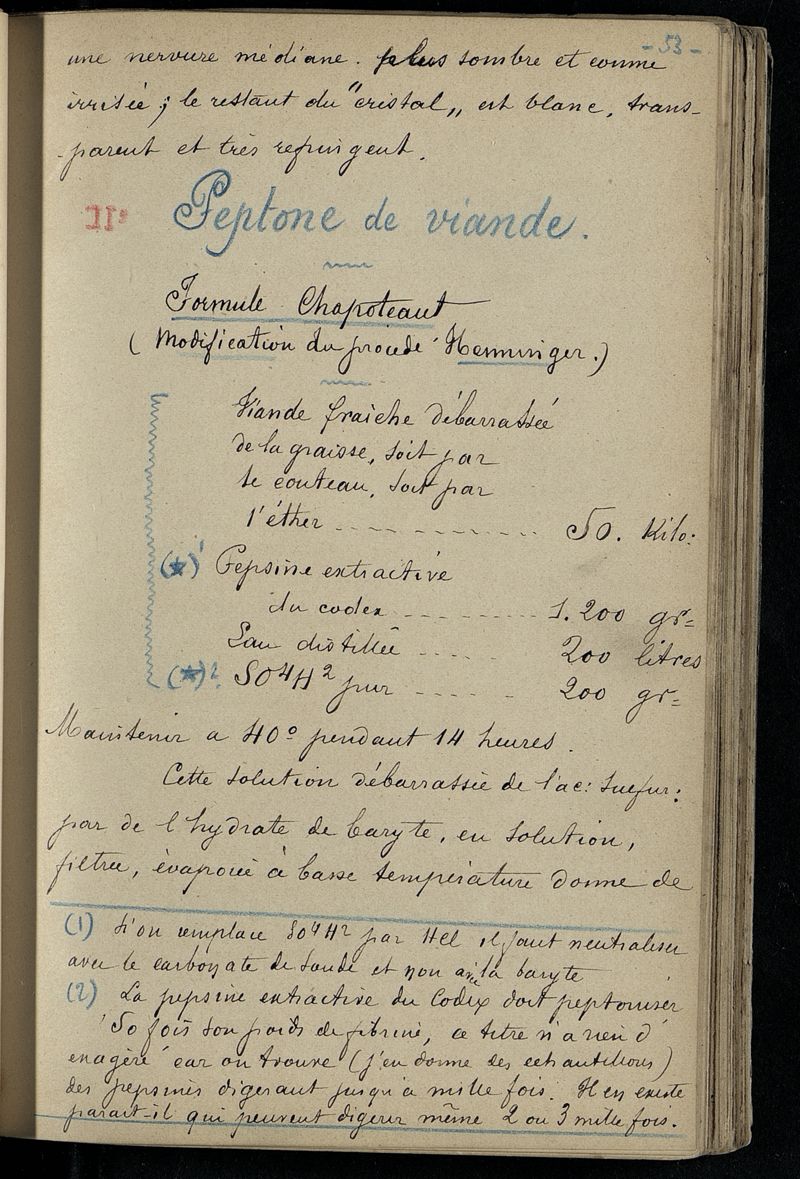 - 53 -
une nervure médiane. plus sombre et comme
irrisée ; le restant du "cristal„ est blanc, trans-
-parent et très refringent.
IIº Peptone de viande.
Formule Chapoteaut
( Modification du procédé Henninger.)
Viande fraiche débarrassée
de la graisse, soit par
le couteau, soit par
l'éther ... 50. Kilo:
(*)1 Pepsine extractive
du codex ... 1.200 gr=
Eau distillée ... 200 litres
(*)2 SO4H2 pur ... 200 gr=
Maintenir a 40º pendant 14 heures.
Cette solution débarrassée de l'ac: sulfur:
par de l'hydrate de baryte, en solution,
filtrée, évaporée à basse température donne de
(1) Si l'on remplace SO4H2 par Hcl il faut neutraliser
avec le carbonate de soude et non avec la baryte
(2) La pepsine extractive du Codex doit peptoniser
50 fois son poids de fibrine, ce titre n'a rien d'
exagéré car on trouve (j'en donne des echantillons)
des pepsines digerant jusqu'a mille fois. Il en existe
parait-il qui peuvent digerer même 2 ou 3 mille fois.